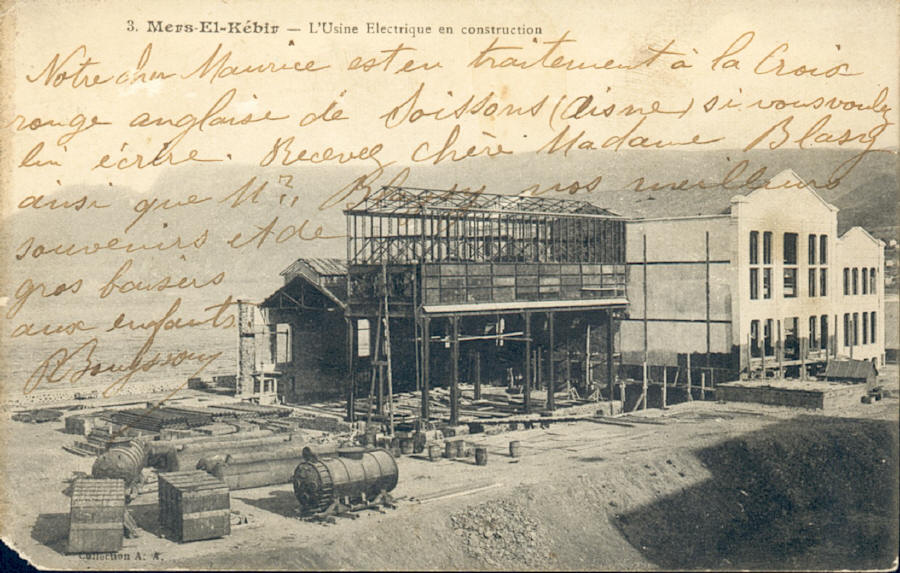 3. Mers-El-Kébir — L'Usine Electrique en construction
Notre cher Maurice est en traitement à la Croix
rouge anglaise de Soissons (Aisne) si vous voulez
lui écrire. Recevez chère Madame Blasy
ainsi que Mr., Blasy nos meilleurs
souvenirs et de
gros baisers
aux enfants
Collection A. A.